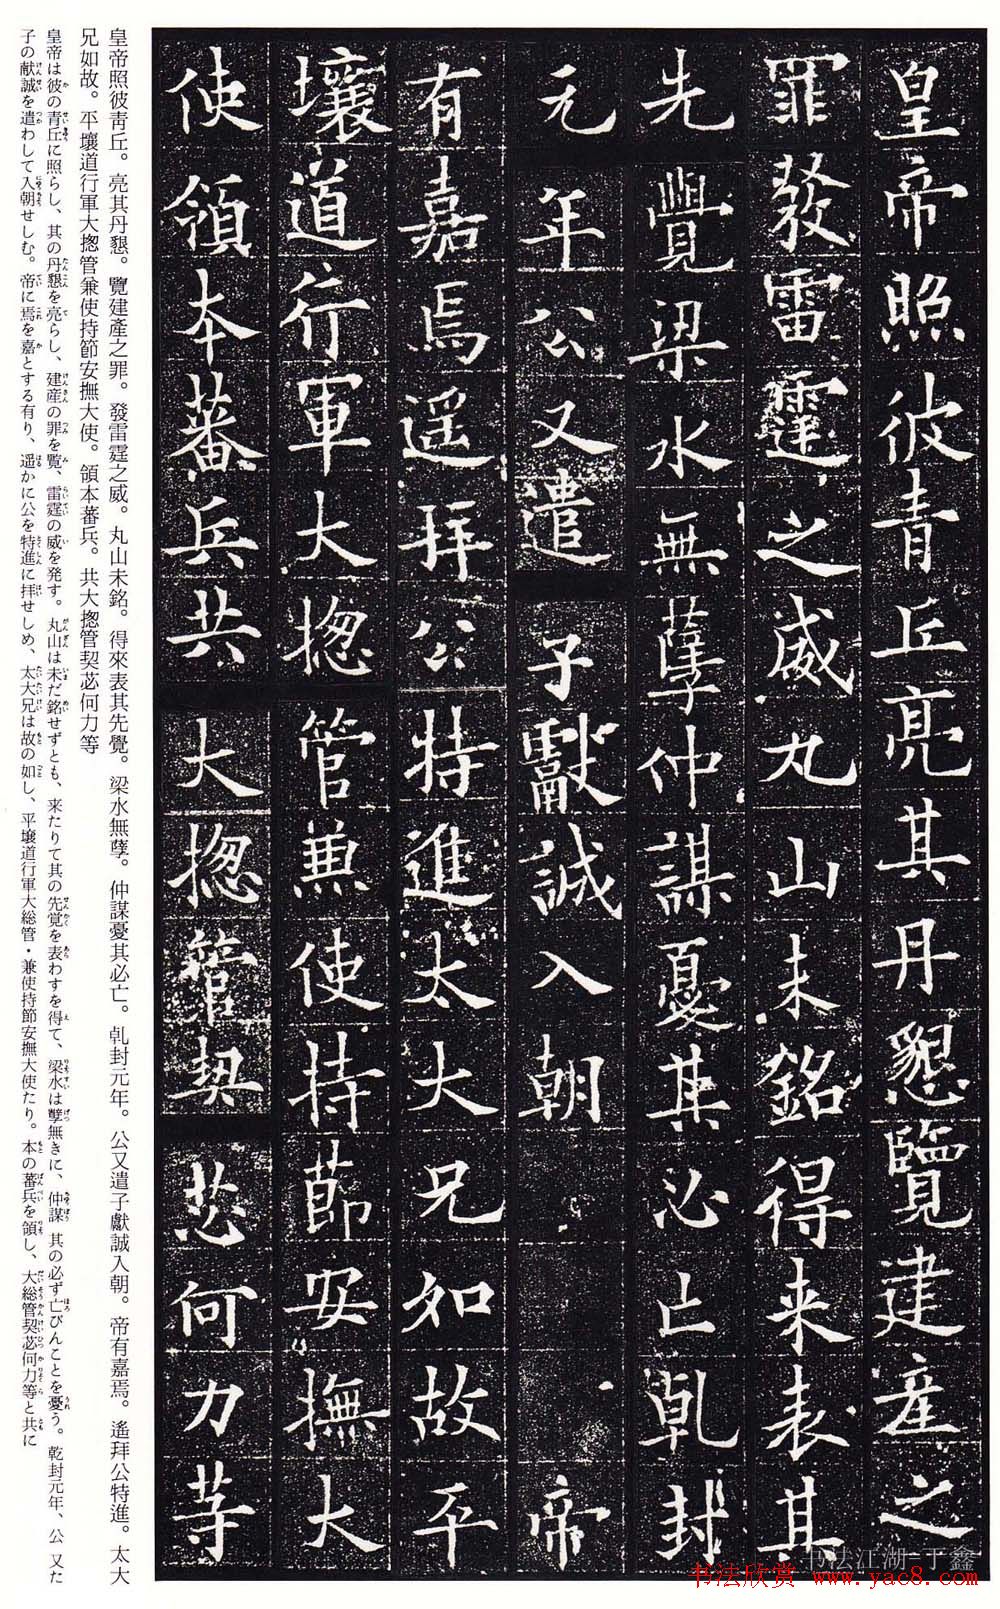 皇帝照彼青丘亮其丹懇覽建產之
罪發雷霆之威丸山未銘得来表其
先覺梁水無孽仲謀憂其必亡乹封
元年公又遣子獻誠入朝帝
有嘉焉遥拜公特進太大兄如故平
壤道行軍大揔管兼使持節安撫大
使領本蕃兵共大揔管契苾何力等
皇帝照彼青丘。亮其丹懇。覽建產之罪。發雷霆之威。丸山未銘。得來表其先覺。梁水無孽。仲謀憂其必亡。乹封元年。公又遣子獻誠入朝。帝有嘉焉。遙拜公特進。太大
兄如故。平壤道行軍大揔管兼使持節安撫大使。領本蕃兵。共大揔管契苾何力等
皇帝は彼の青丘に照らし、其の丹懇を亮らし、建産の罪を覧、雷霆の威を発す。丸山は未だ銘せずとも、来たりて其の先覚を表わすを得て、梁水は孽無きに、仲謀 其の必ず亡びんことを憂う。乾封元年、公 又た
子の献誠を遣わして入朝せしむ。帝に焉を嘉とする有り、遥かに公を特進に拝せしめ、太大兄は故の如し、平壌道行軍大総管・兼使持節安撫大使たり。本の蕃兵を領し、大総管契苾何力等と共に
书法江湖-于鑫
书法欣赏 www.yac8.com